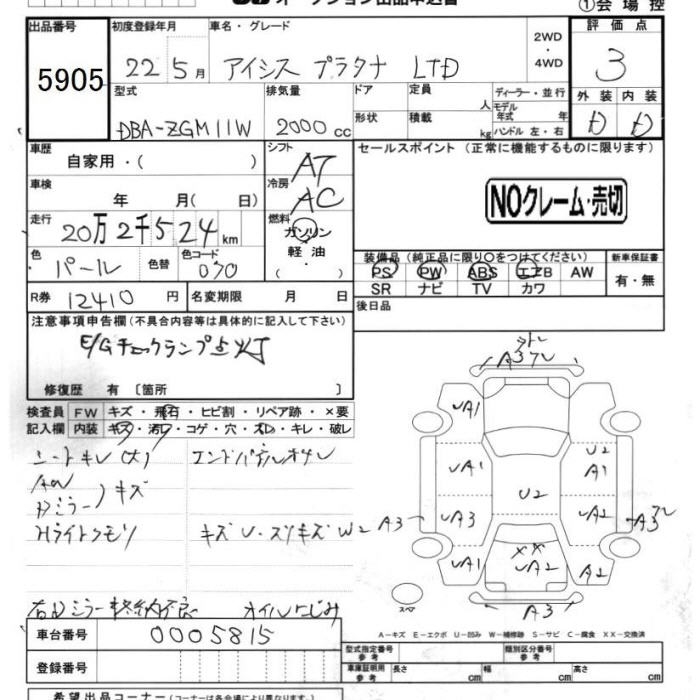 オークション出品申込書
①会場控
出品番号 初度登録年月 車名・グレード 2WD・4WD 評価点
5905 22 5月 アイシス プラタナ LTD 3
型式 排気量 ドア 定員 人 ディーラー・並行
DBA-ZGM11W 2000cc 形状 積載 kg モデル年式 年 ハンドル 左・右
外装 内装
D D
車歴 シフト セールスポイント (正常に機能するものに限ります)
自家用・( ) AT
車検 冷房 NOクレーム・売切
年 月( 日) AC
走行 燃料
20万2千524km ガソリン
軽油・
色 色替 色コード
パール 070
装備品 (純正品に限り○をつけてください) 新車保証書
PS PW ABS エアB AW 有・無
SR ナビ TV カワ
R券 12410円 名変期限 月 日 後日品
注意事項申告欄 (不具合内容等は具体的に記入して下さい)
E/Gチェックランプ点灯
修復歴 有 〔箇所 〕
検査員 FW キズ・飛石・ヒビ割・リペア跡・×要
記入欄 内装 キズ・汚レ・コゲ・穴・スレ・キレ・破レ
シートキレ(大) エンドパネルオサレ
AW
Dミラー)キズ
Hライトクモリ キズU・スリキズW2
右Dミラー格納不良 オイルにじみ
A3
UA1
UA1
UA3
UA1
A3
U2
U2
A1
UA2
A2
A3
XX
UA2
A3
スペア
A-キズ E-エクボ U-凹み W-補修跡 S-サビ C-腐食 XX-交換済
車台番号 0005815
登録番号
型式指定番号 参考 類別区分番号 参考
車庫証明用 参考 長さ cm 幅 cm 高さ cm
希望出品コーナー (コーナーは各会場により異なります。)